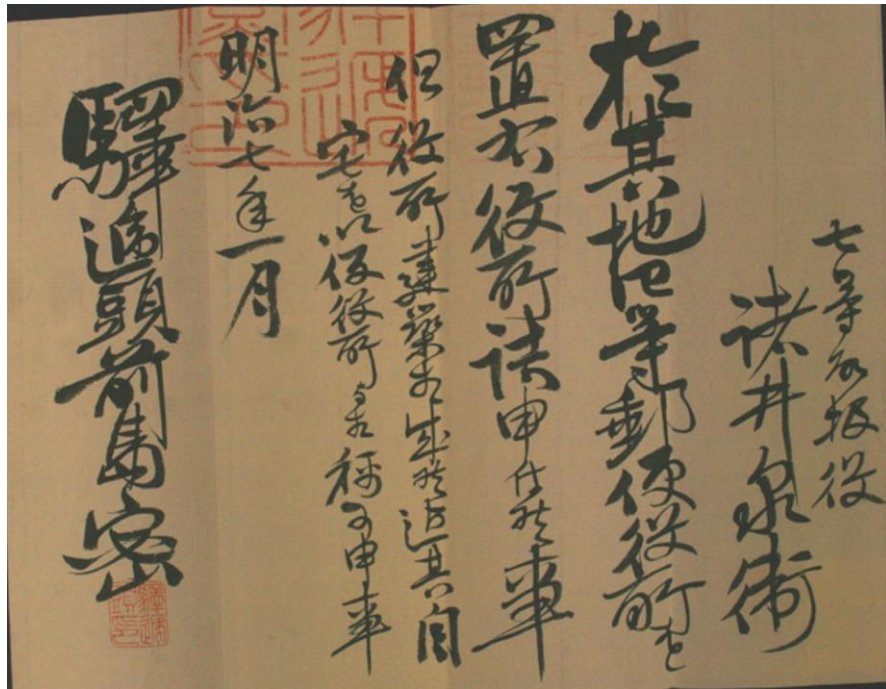 七等取扱役
諸井泉衛
於其地四等郵便役所を
置右役所詰申付候事
但役所建築相成候迄其自
宅を以仮役所与相称可申事
明治七年一月
驛逓頭前島密